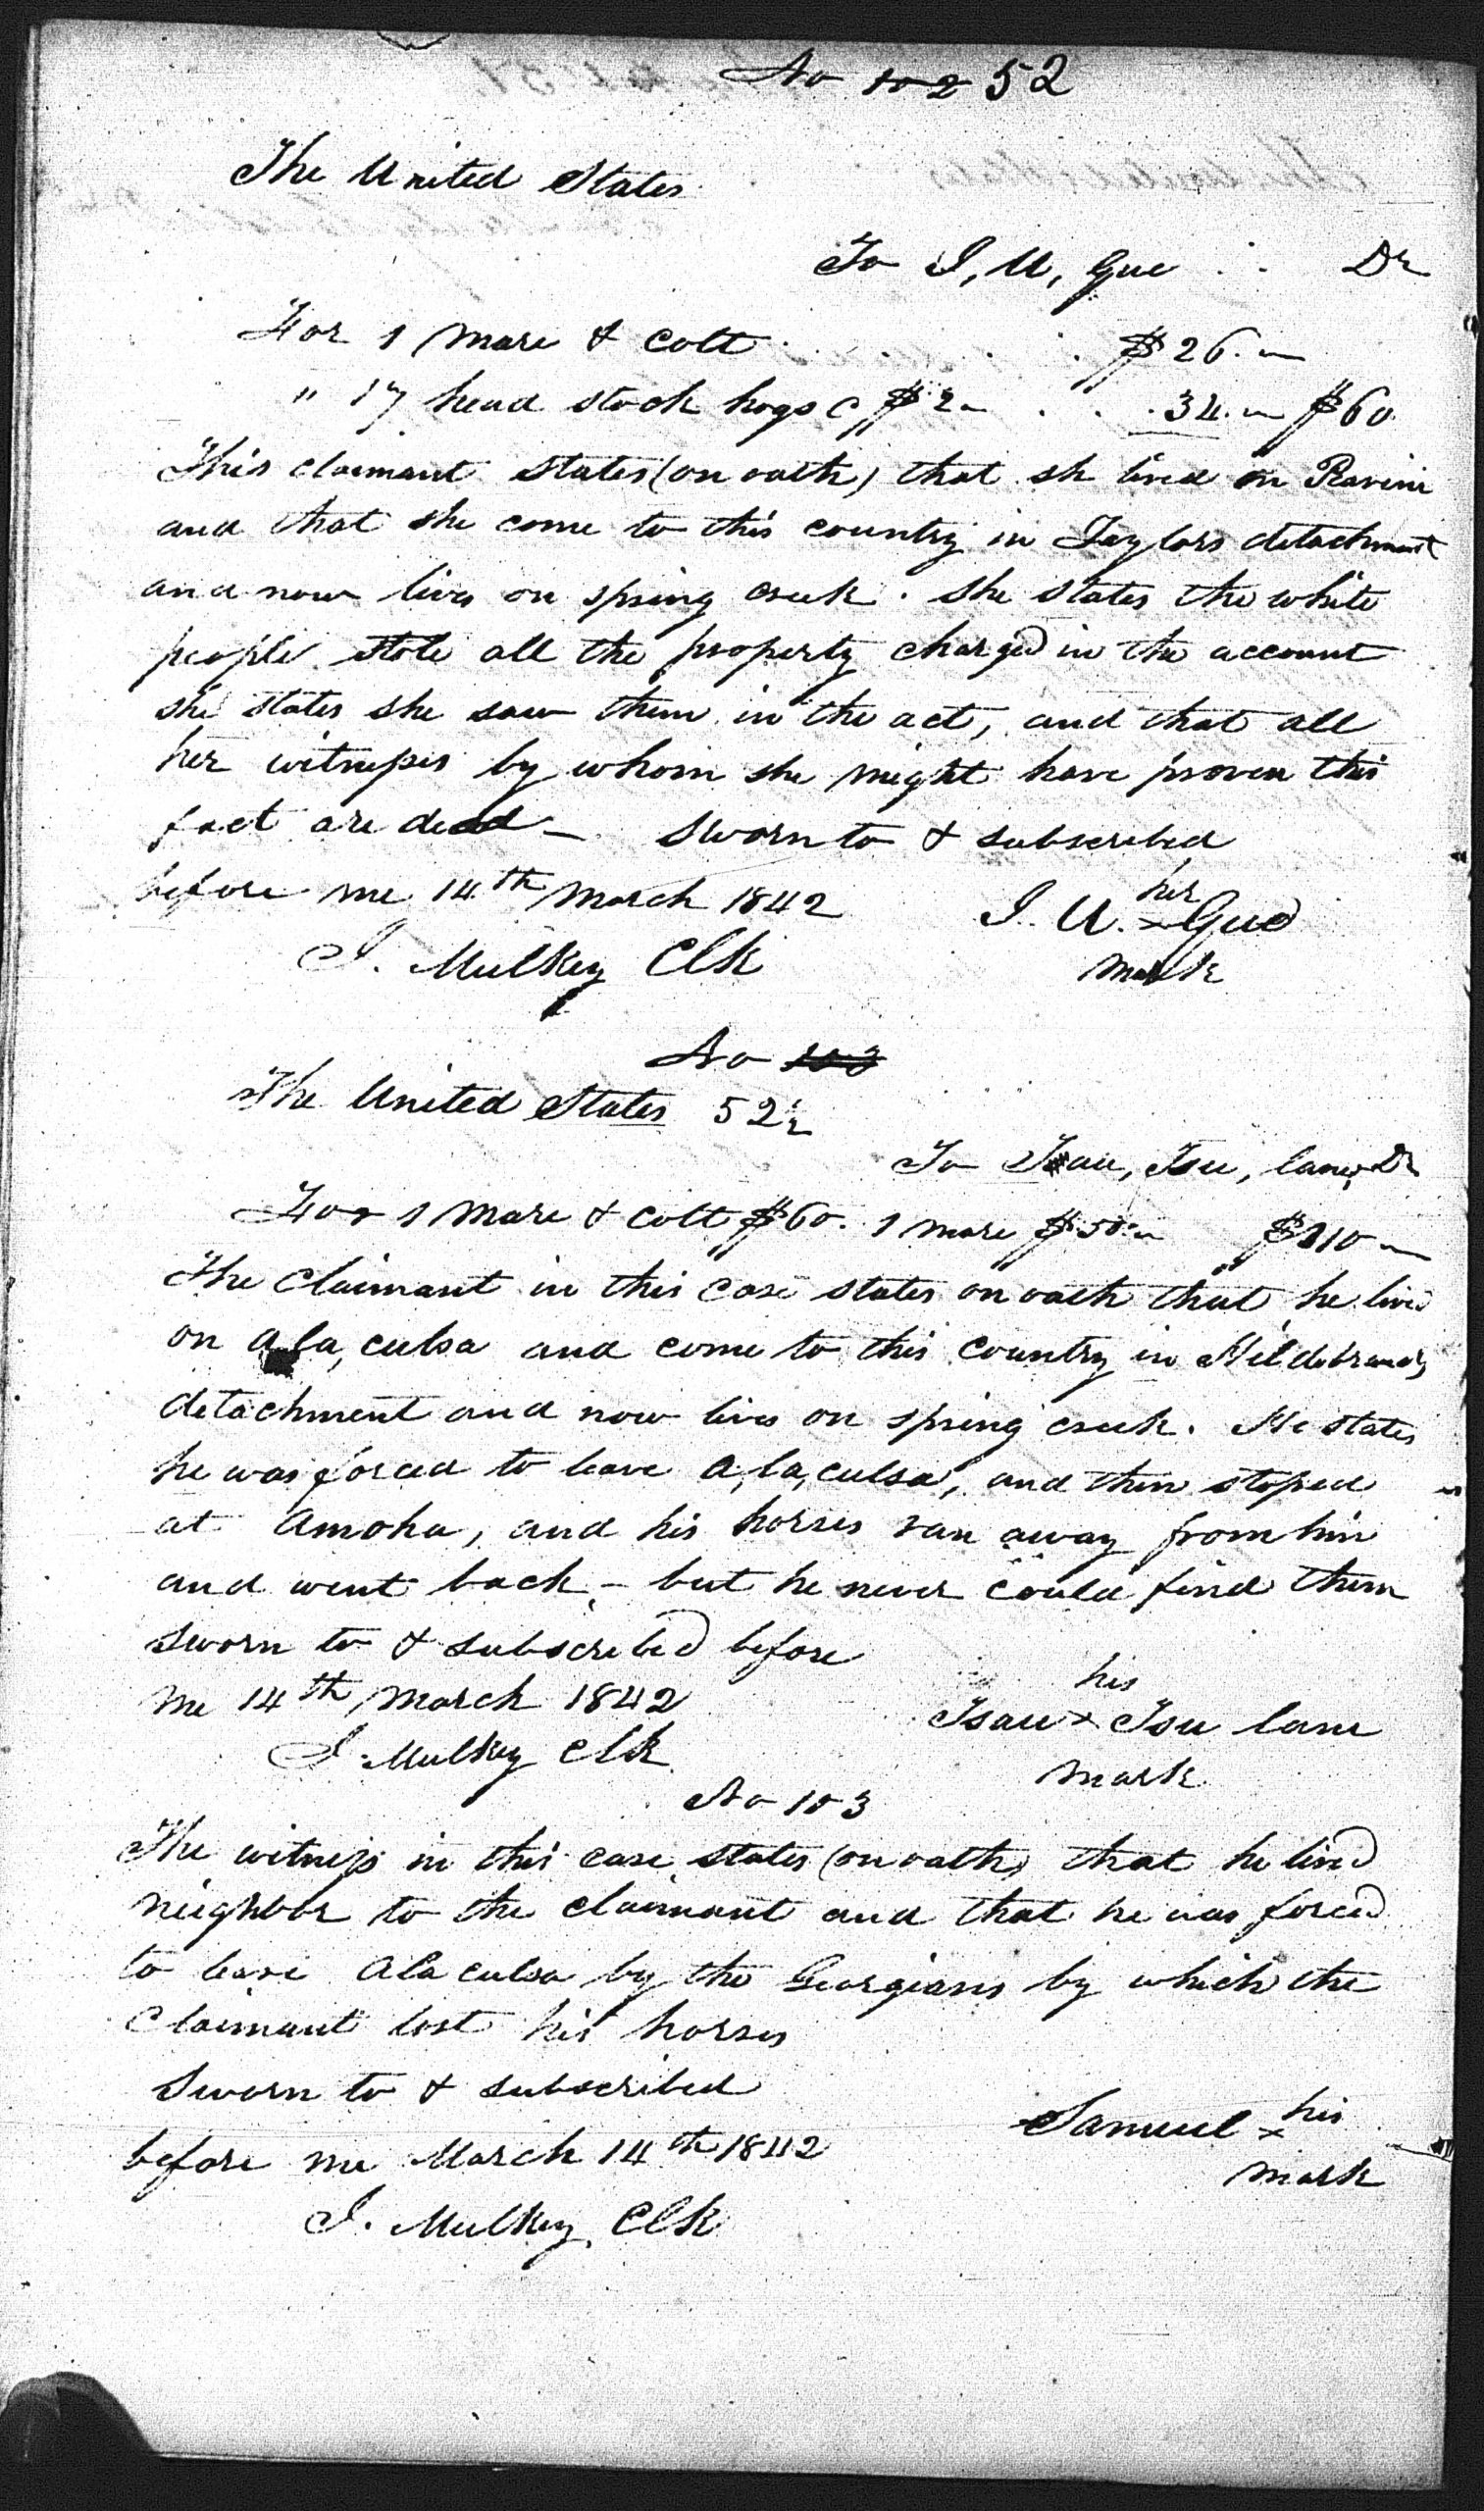 No 102 52
The United States
To I, U, Gue . . Dr
For 1 mare & colt . . . . . $26.—
" 17 head stock hogs @ $2— . . . 34.— $60.
This claimant states (on oath) that sh lived on Ravine
and that she come to this country in Taylors detachment
and now lives on spring creek. She states the white
people stole all the property charged in the account
she states she saw them in the act, and that all
her witnesses by whom she might have proven this
fact are dead — Sworn to & subscribed
before me 14th March 1842
her
I. U. x Gue
mark
J. Mulkey Clk
No 103
The United States 52½
To Isau, Tsu, lane, Dr
For 1 mare & colt $60. 1 mare $50.— $110—
The claimant in this case states on oath that he lived
on a la, culsa and come to this country in Hildebrands
detachment and now lives on spring creek. He states
he was forced to leave a,la,culsa, and then stoped
at Amoha, and his horses ran away from him
and went back – but he never could find them
Sworn to & subscribed before
me 14th March 1842
his
Isau x Tsu lane
mark
J. Mulkey Clk
No 103
The witness in this case states (on oath) that he lived
neighbor to the claimant and that he was forced
to leave Ala culsa by the Georgians by which the
claimant lost his horses
Sworn to & subscribed
before me March 14th 1842
his
Samuel x
mark
J. Mulkey, Clk